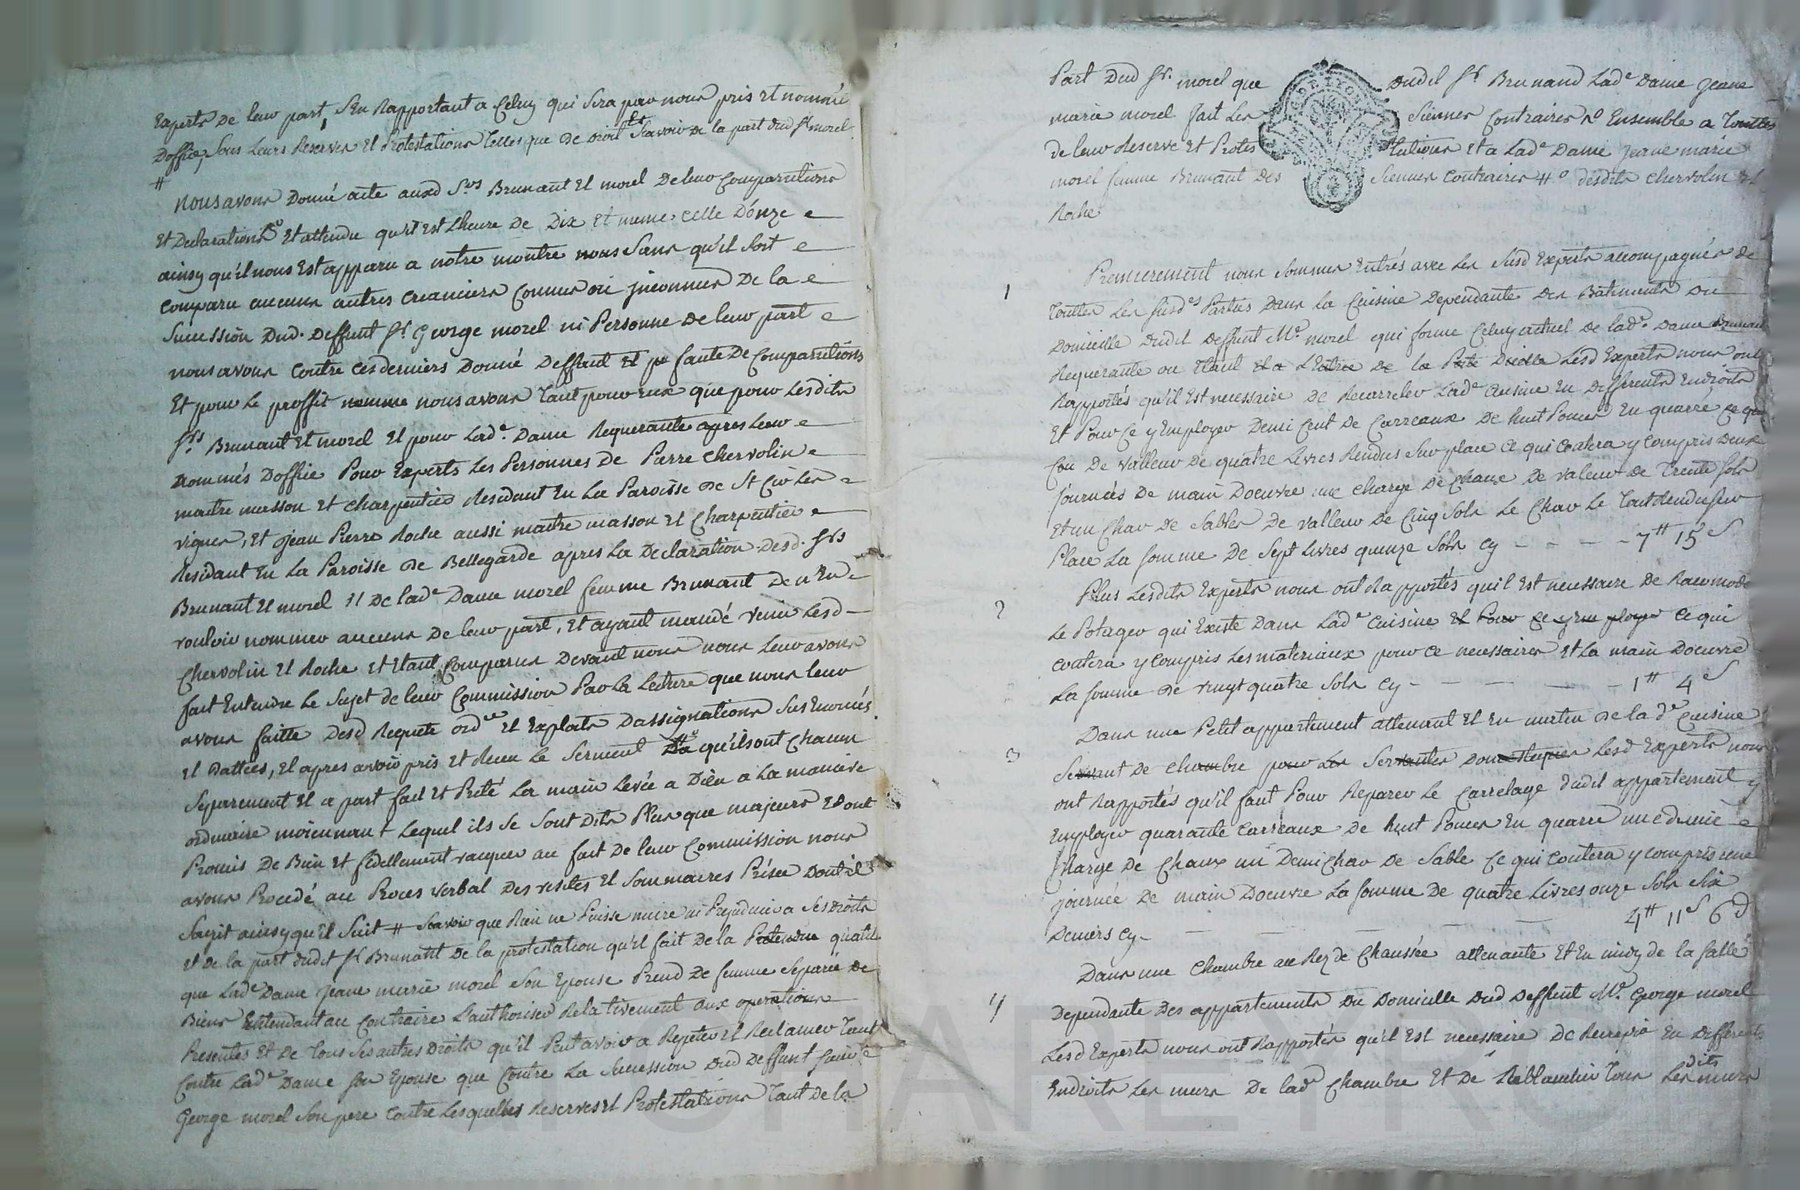 Experts de leur part, s'en Rapportant a Celuy qui sera par nous pris et nommé
Doffice, sous leurs Reserves et Protestations telles que de droit et scavoir de la part dud sr morel
# nous avons Donné acte auxd srs Brunant et morel de leur Comparutions
et Declarations et attendu qu'il est L'heure de Dix et meme celle D'onze
ainsy qu'il nous est apparu a notre montre nous sans qu'il soit
Comparu aucuns autres Creanciers Connus ou jnconnus De la
Succession Dud. Deffunt sr George morel ni Personne De leur part
nous avons Contre ces derniers Donné Deffaut faute De Comparutions
Et pour Le proffit nous avons tant pour eux que pour Lesdits
srs Brunant et morel et pour Lade. Dame Requerante apres Leur
nommés Doffice Pour Experts Les Personnes De Pierre Chervolin
maitre masson et charpentier Residant En La Paroisse de St Cir Les
vignes, et jean Pierre Roche aussi maitre masson et Charpentier
Residant En La Paroisse de Bellegarde apres La Declaration desd. srs
Brunant et morel et De lade Dame morel femme Brunant De n'En
vouloir nommer aucuns De leur part, et ayant mandé venir Lesd
Chervolin et Roche et Etant Comparus Devant nous nous Leur avons
fait Entendre Le Sujet de leur Commission Par La Lecture que nous leur
avons faitte Desd Requete ordce et Exploits Dassignations Sus Enoncés
et Dattées, et apres avoir pris et Receu Le Serment qu'ils ont Chacun
Separement et a part fait et Preté La main Levée a Dieu a La maniere
ordinaire moiennant Lequel ils se sont Dits Plus que majeurs et ont
Promis De Bien et fidellement vacquer au fait De leur Commission nous
avons Procedé au Proces verbal Des visites et Sommaires Prisée Dont il
Sagit ainsy qu'il Suit # Scavoir que Rien ne Puisse nuire ni Prejudicier a Ses Droits
et de la part dudit sr Brunant De la protestation qu'il fait de la Pretendue qualité
que Lade Dame jeane marie morel Son Epouse Prend De femme Separée De
Biens Entendant au Contraire L'authoriser Relativement aux operations
Presentes et De tous ses autres Droits qu'il Peut avoir a Repeter et Reclamer tant
Contre Lade Dame son Epouse que Contre La Succession Dud Deffunt
George morel Son pere Contre Lesquelles Reserves et Protestations tant de la
Part Dud sr. morel que Dudit sr Brunand Lade Dame jeane
marie morel fait Les Siennes Contraires Ensemble a toutes
de leur Reserve et Protestations et a Lade Dame jeane marie
morel femme Brunant Des Siennes Contraires # desdits Chervolin et
Roche
1 Premierement nous Sommes Entrés avec Les Susd Experts accompagnés de
touttes Les susdes Parties Dans La Cuisine Dependante Des Batiments Du
Domicille Dudit deffunt Mr. morel qui forme Celuy actuel de lade. Dame Brunant
Requerante ou Etant Lesd Experts nous ont
Rapportés qu'il Est necessaire De Recarreler Lade Cuisine En Differents Endroits
et Pour Ce y Employer Demi Cent de Carreaux De huit Pouces En quarré
De valleur De quatre Livres Rendus Sur place Ce qui Coutera y Compris Deux
journées De main Doeuvre une Charge De Chaux De valeur De trente Sols
et un Char de Sables De valleur De Cinq Sols Le Char Le tout Rendu sur
Place La somme De Sept Livres quinze Sols Cy - - - - 7# 15s
2 Plus Lesdits Experts nous ont Rapportés qu'il Est necessaire De Racomoder
Le Potager qui Existe Dans Lade Cuisine et Pour Ce y Employer Ce qui
Coutera y Compris Les materiaux pour Ce necessaires et La main Doeuvre
La somme De vingt quatre Sols Cy - - - - 1# 4s
3 Dans une Petit appartement attenant et En matin de la de Cuisine
Servant De chambre pour Les Servantes Domestiques Lesd Experts nous
ont Rapportés qu'il faut Pour Reparer Le Carrelage dudit appartement y
Employer quarante Carreaux De huit Pouces En quarré une demie
Charge De Chaux un Demi Char de Sable Ce qui Coutera y Compris une
journée De main Doeuvre La somme De quatre Livres onze Sols Six
Deniers Cy - - - - 4# 11s 6d
4 Dans une Chambre au Rez de Chaussée attenante et En midy de la salle
Dependante Des appartements Du Domicille Dud Deffunt Mr. George morel
Lesd Experts nous ont Rapportés qu'il Est necessaire De Recrepir En Differents
Endroits Les murs De lade Chambre et De Reblanchir tous Lesdits murs